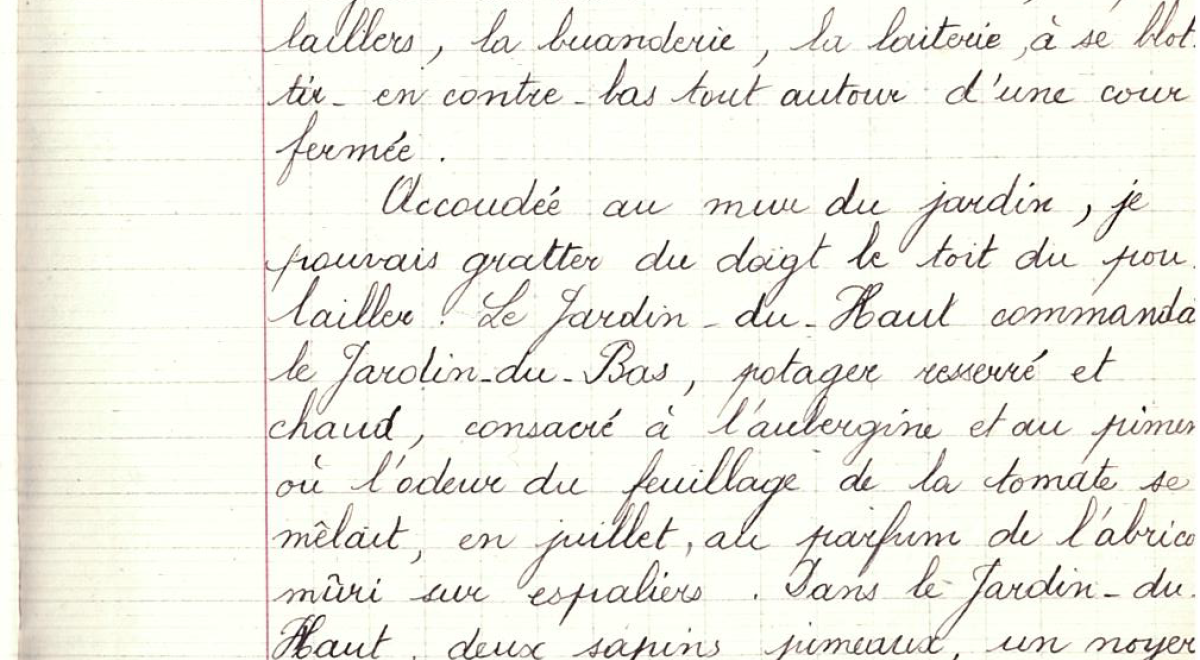 laillers, la buanderie, la laiterie, à se blot
tir en contre-bas tout autour d'une cour
fermée.
Accoudée au mur du jardin, je
pouvais gratter du doigt le toit du pou
lailler. Le Jardin-du-Haut commanda
le Jardin-du-Bas, potager resserré et
chaud, consacré à l'aubergine et au pimen
où l'odeur du feuillage de la tomate se
mêlait, en juillet, au parfum de l'abrico
mûri sur espaliers. Dans le Jardin-du-
Haut, deux sapins jumeaux, un noyer